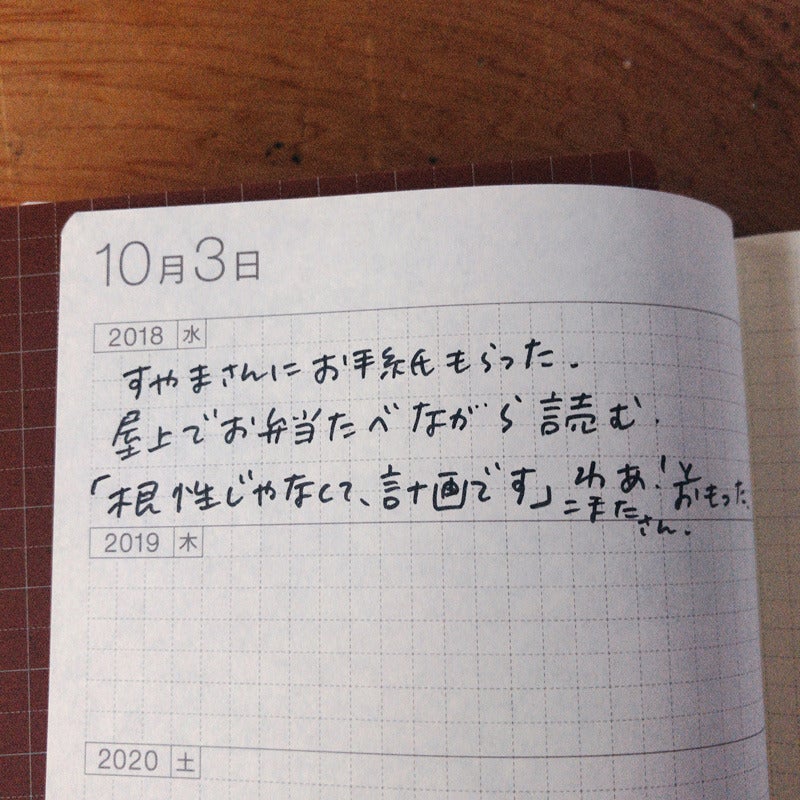 10月3日
2018 水
すやまさんにお手紙もらった.
屋上でお弁当たべながら読む.
「根性じゃなくて、計画です」わあ!とおもった.
こまたさん.
2019 木
2020 土